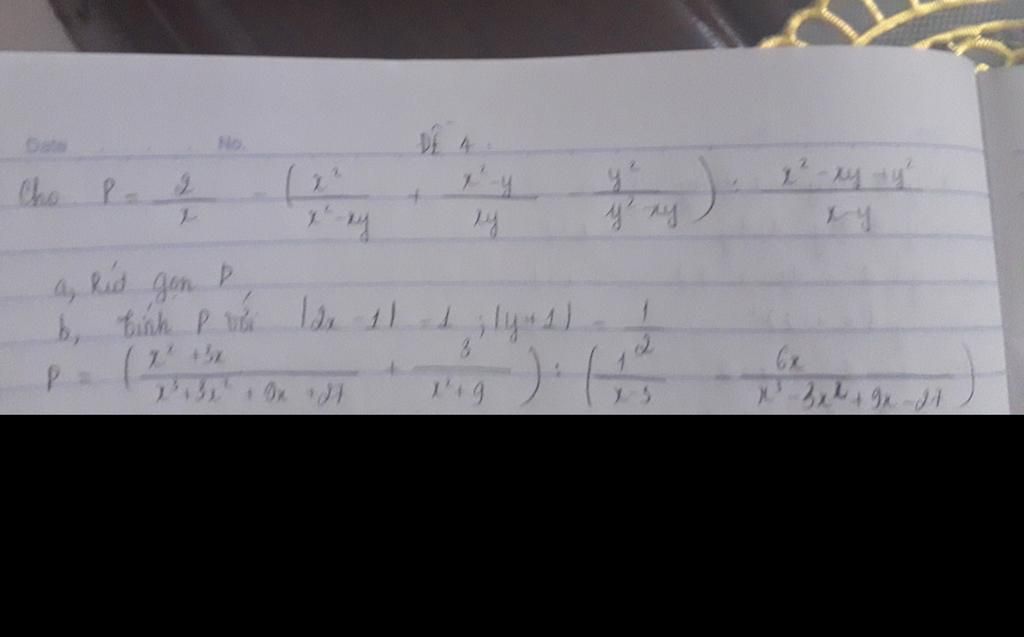 Date No. ĐỀ 4.
Cho P = 2/x - (x²/(x² - xy) + (x² - y)/xy - y²/(y² - xy)) : (x² - xy + y²)/(x - y)
a, Rút gọn P
b, tính P với |2x - 1| = 1 ; |y + 1| = 1/2
P = ((x² + 3x)/(x³ + 3x² + 9x + 27) + 3/(x² + 9)) : (1/(x - 3) - 6x/(x³ - 3x² + 9x - 27))